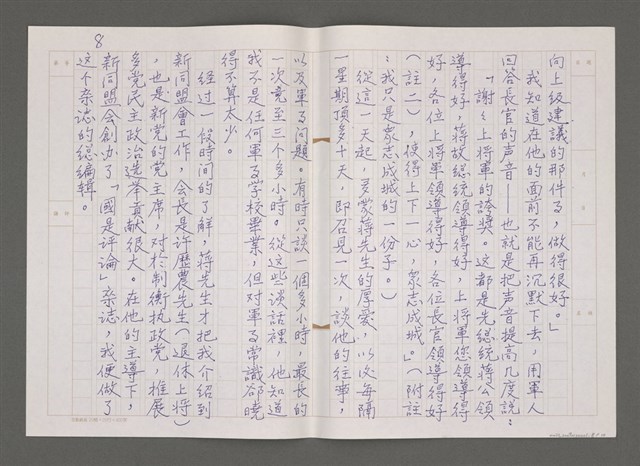 向上級建議的那件事，做得很好。」
我知道在他的面前不能再沉默下去，用軍人
回答長官的声音——也就是把声音提高几度說：
「謝謝上將軍的誇獎。这都是先總統蔣公領
導得好，蔣故總統領導得好，上將軍您領導得
好，各位上將軍領導得好，各位長官領導得好
（註二），使得上下一心，眾志成城。」（附註
：我只是眾志成城的一份子。）
從這一天起，多蒙蔣先生的厚愛，以後每隔
一星期頂多十天，即召見一次，談他的往事，
以及軍事问題。有時只談一個多小時，最長的
一次竟至三个多小時。從这些談話裡，他知道
我不是任何軍事学校畢業，但对軍事常識卻曉
得不算太少。
經过一段時间的了解，蔣先生才把我介紹到
新同盟會工作，会長是許歷農先生（退休上將）
，也是新党的党主席，对於制衡执政党，推展
多党民主政治选举貢献很大。在他的主導下，
新同盟会創办了「國是评論」杂誌，我便做了
这个杂誌的総編輯。
8